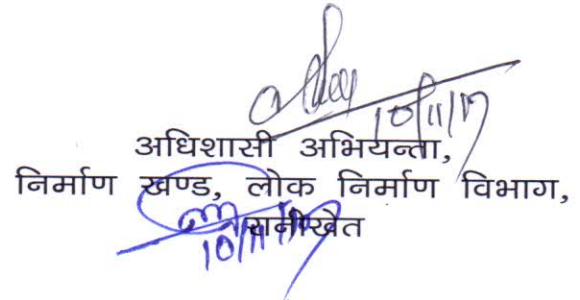 10/11/17
अधिशासी अभियन्ता,
निर्माण खण्ड, लोक निर्माण विभाग,
रानीखेत
10/11/17